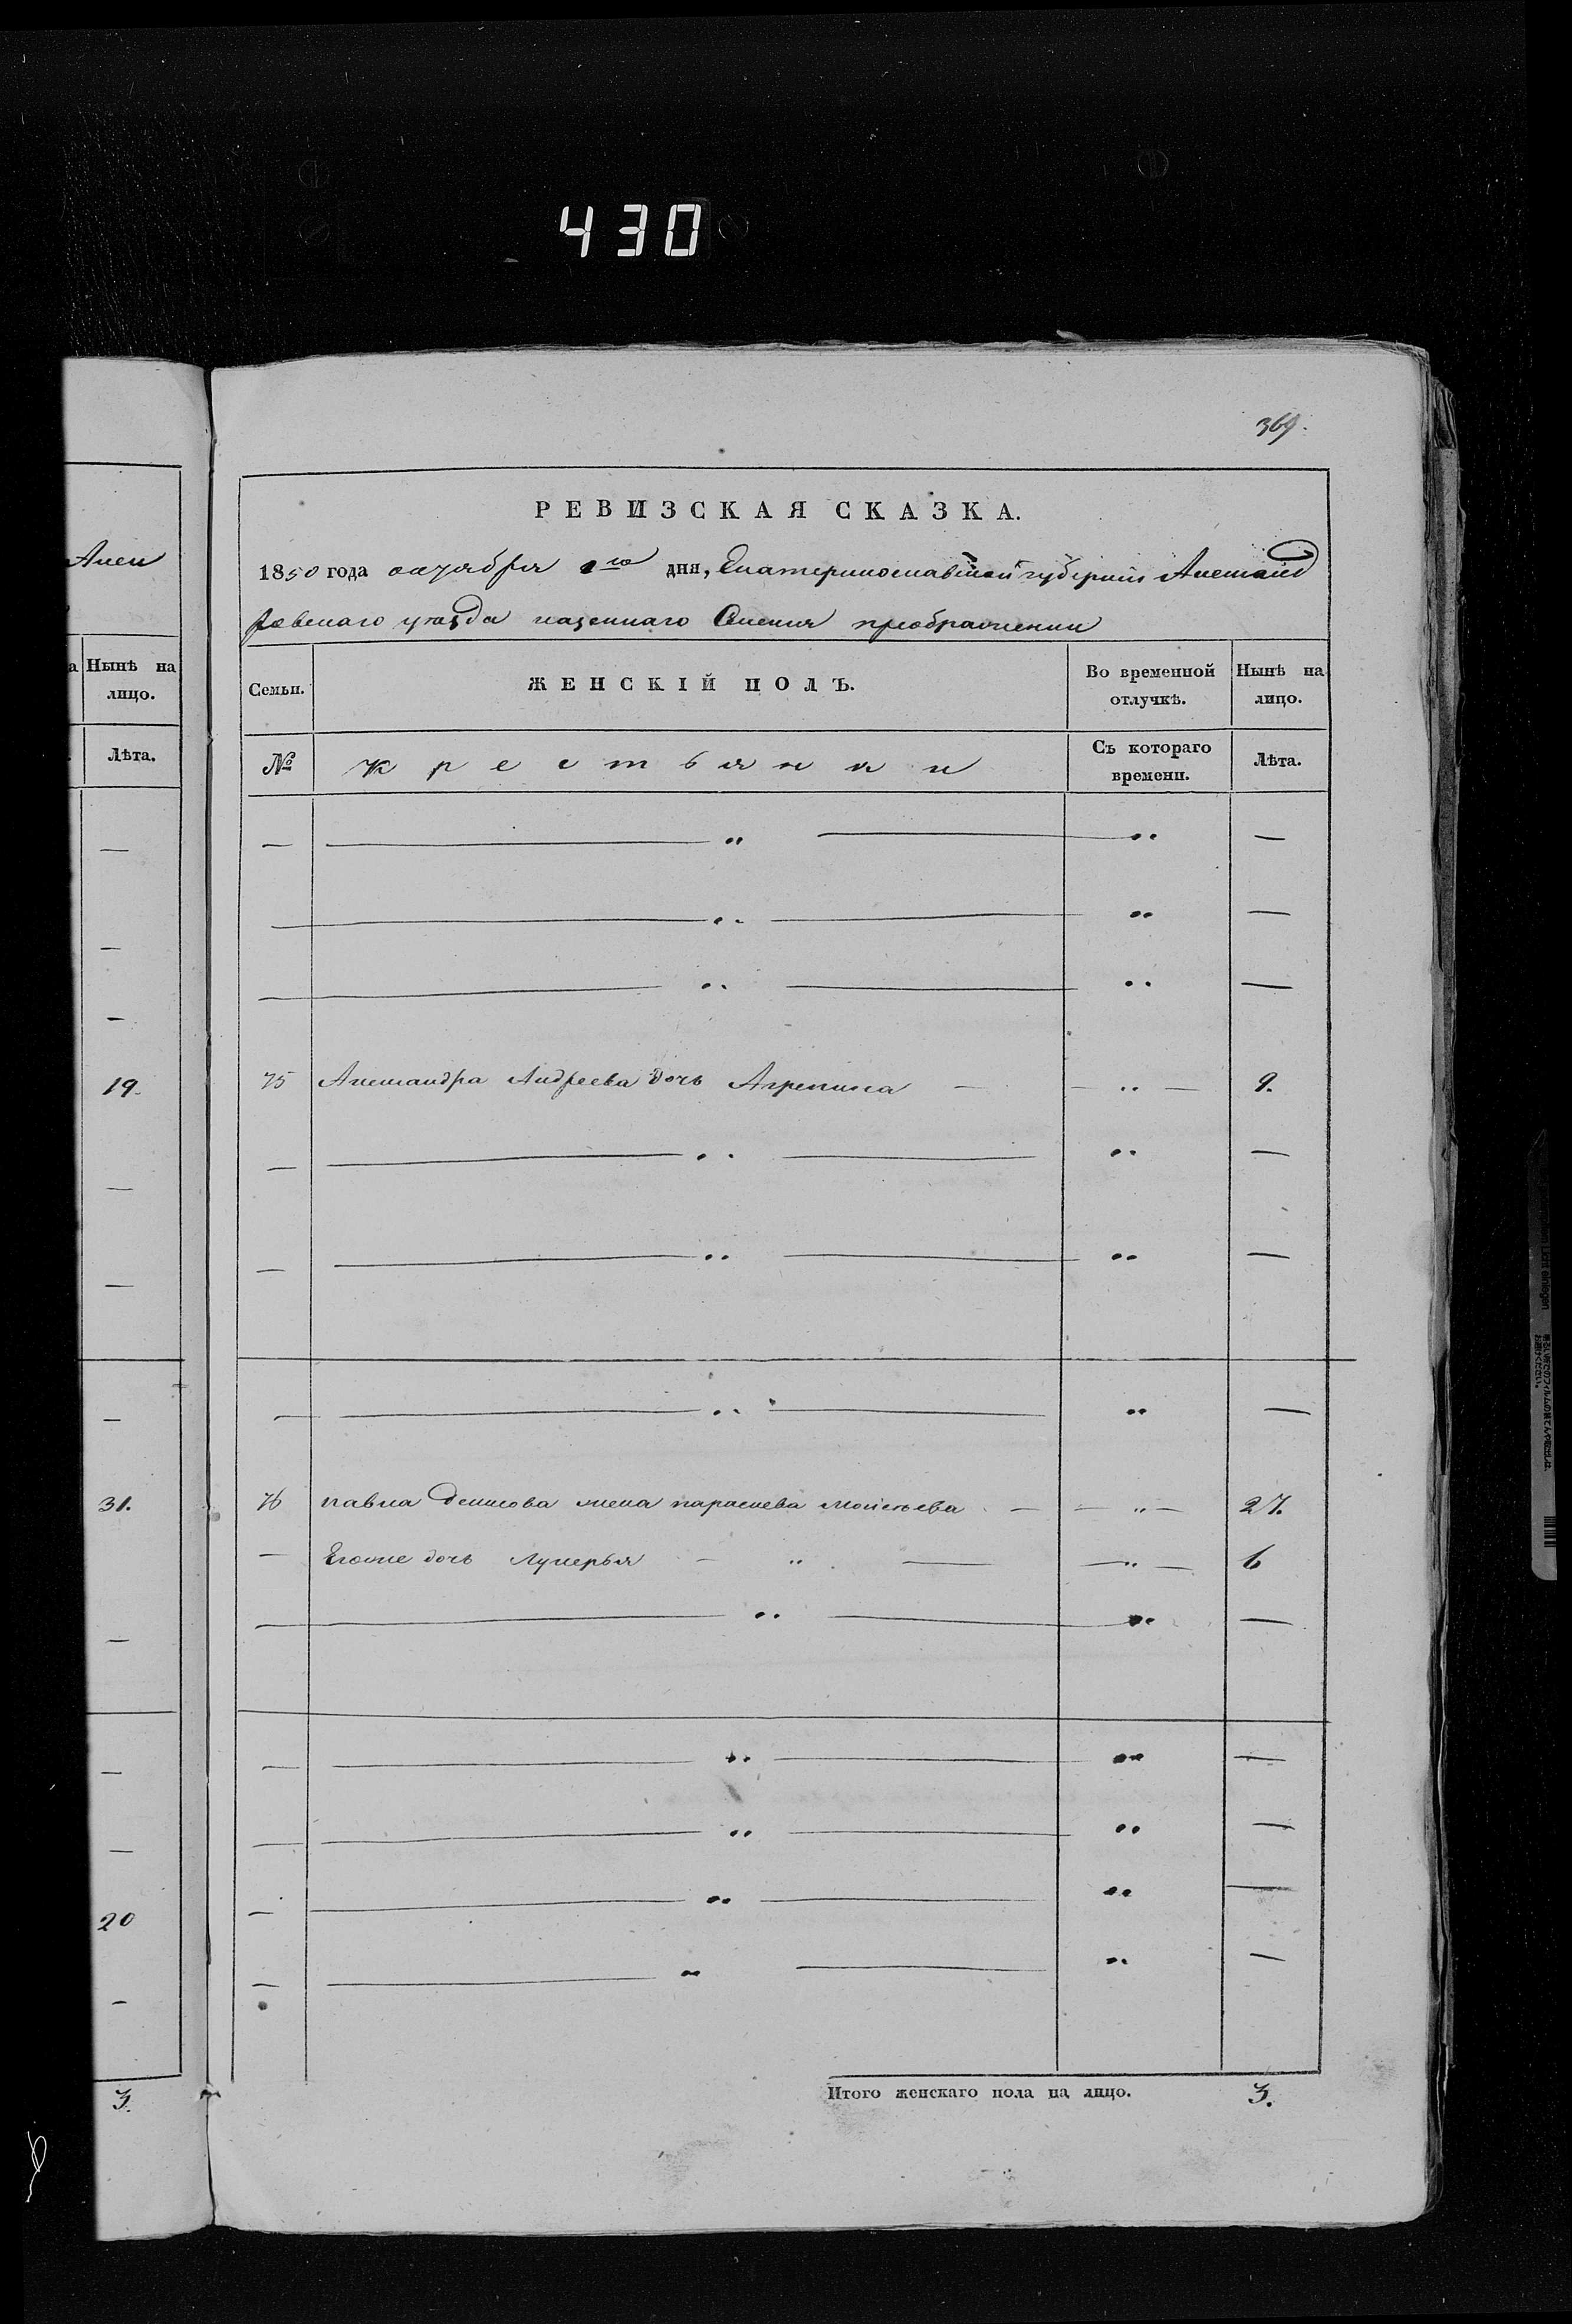 430
369.
РЕВИЗСКАЯ СКАЗКА.
1850 года октября 1го дня, Екатеринославской губернии Александ
ровскаго уезда казеннаго Селения преображенки
Семьи.
ЖЕНСКІЙ ПОЛЪ.
Во временной отлучкѣ.
Нынѣ на лицо.
№
крестьянки
Съ котораго времени.
Лѣта.
75 Александра Андреева дочь Агрепина 9.
76 павла Денисова жена параскева Моисеева 27.
Егоже дочь Лукерья 6
Итого женскаго пола на лицо. 3.
Алек
Нынѣ на
лицо.
Лѣта.
19.
31.
20
3.